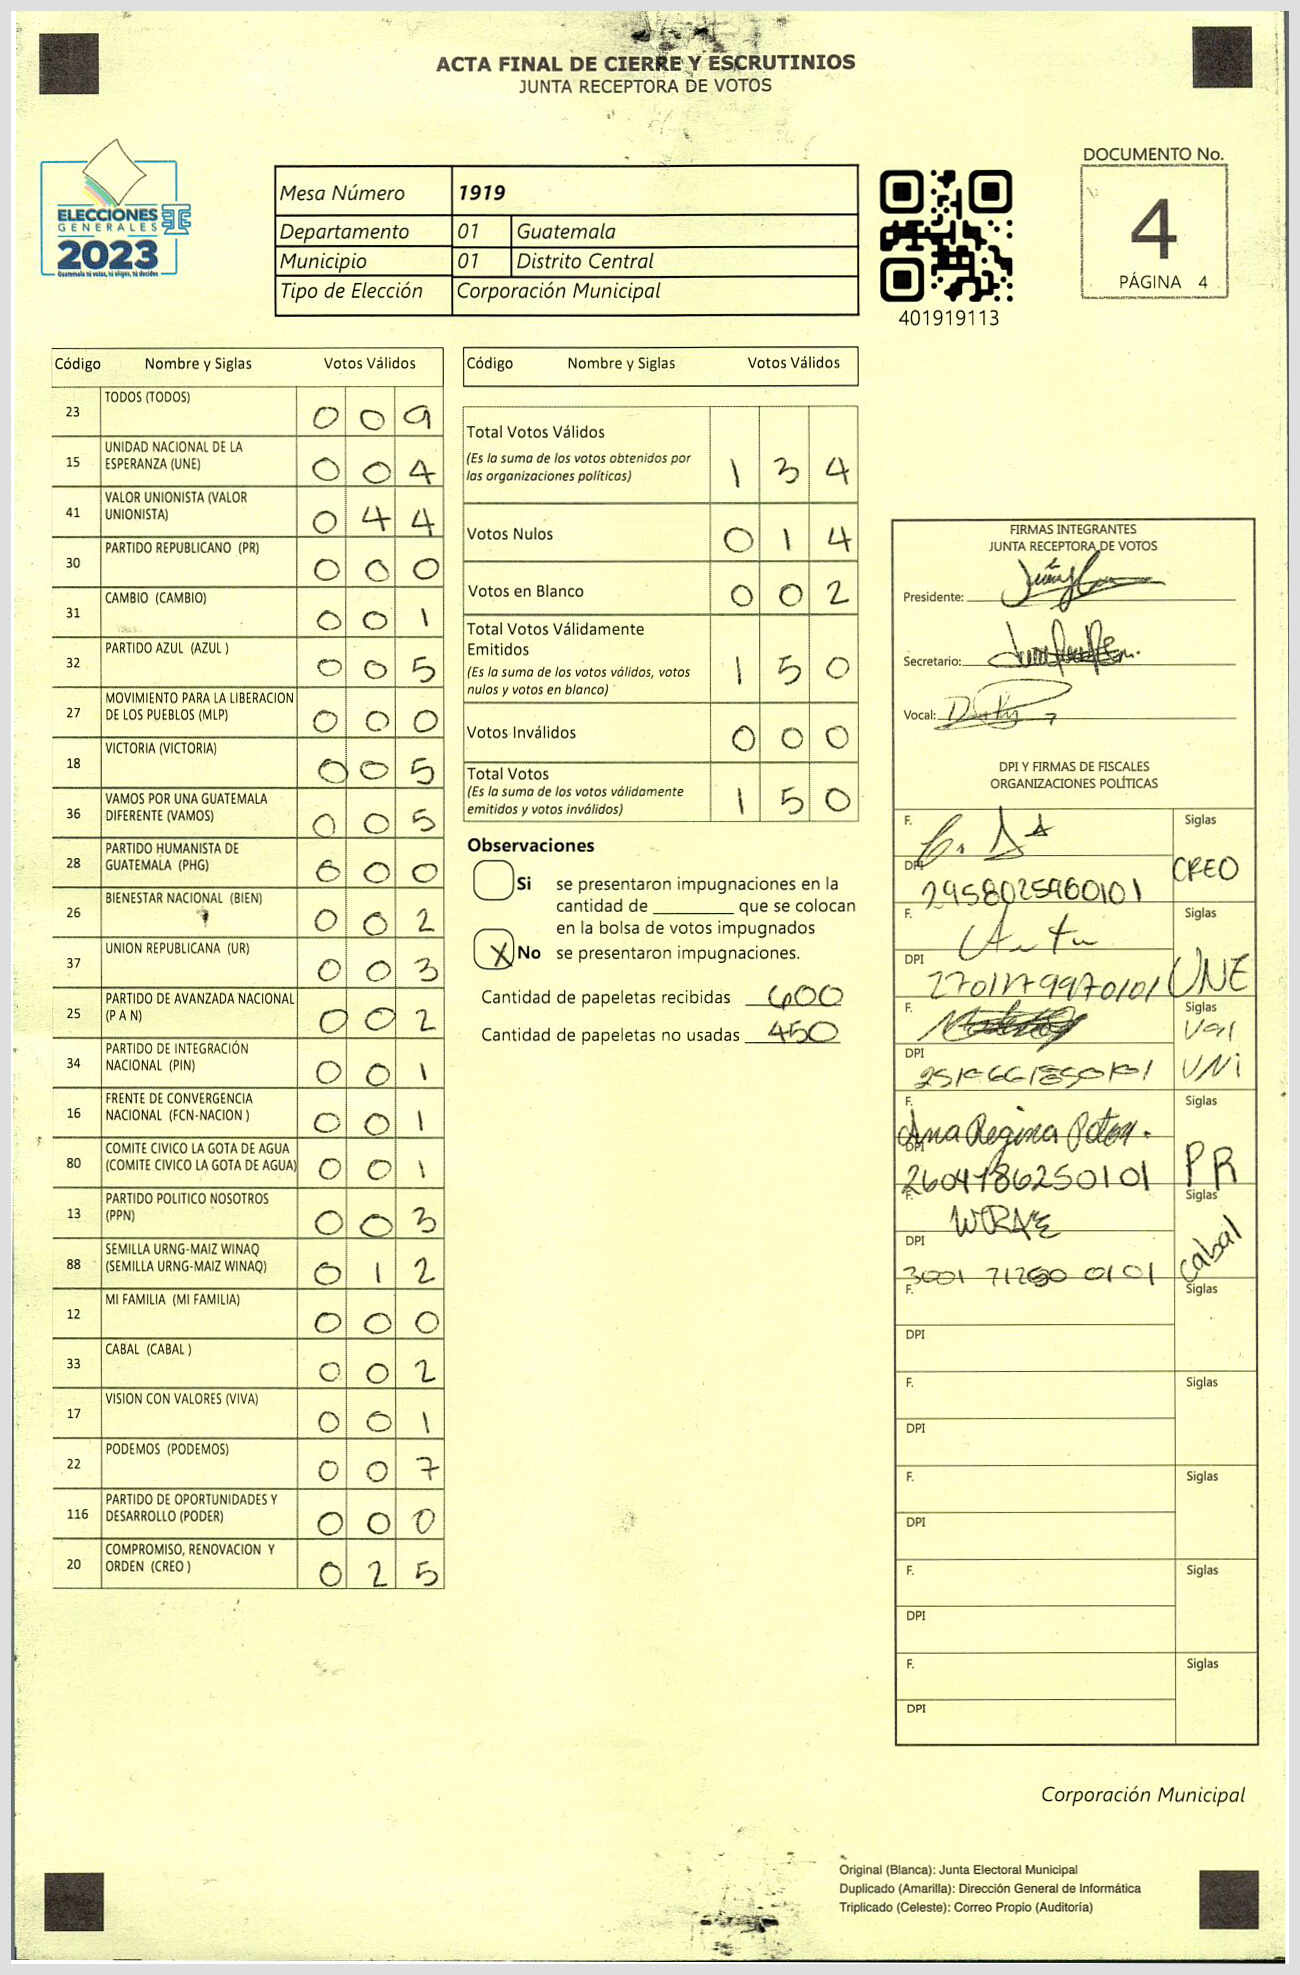 ACTA FINAL DE CIERRE Y ESCRUTINIOS
JUNTA RECEPTORA DE VOTOS
ELECCIONES
GENERALES
2023
Guatemala tú votas, tú eliges, tú decides
Mesa Número 1919
Departamento 01 Guatemala
Municipio 01 Distrito Central
Tipo de Elección Corporación Municipal
401919113
DOCUMENTO No.
4
PÁGINA 4
Código Nombre y Siglas Votos Válidos
23 TODOS (TODOS) 0 0 9
15 UNIDAD NACIONAL DE LA
ESPERANZA (UNE) 0 0 4
41 VALOR UNIONISTA (VALOR
UNIONISTA) 0 4 4
30 PARTIDO REPUBLICANO (PR) 0 0 0
31 CAMBIO (CAMBIO) 0 0 1
32 PARTIDO AZUL (AZUL ) 0 0 5
27 MOVIMIENTO PARA LA LIBERACION
DE LOS PUEBLOS (MLP) 0 0 0
18 VICTORIA (VICTORIA) 0 0 5
36 VAMOS POR UNA GUATEMALA
DIFERENTE (VAMOS) 0 0 5
28 PARTIDO HUMANISTA DE
GUATEMALA (PHG) 0 0 0
26 BIENESTAR NACIONAL (BIEN) 0 0 2
37 UNION REPUBLICANA (UR) 0 0 3
25 PARTIDO DE AVANZADA NACIONAL
(P A N) 0 0 2
34 PARTIDO DE INTEGRACIÓN
NACIONAL (PIN) 0 0 1
16 FRENTE DE CONVERGENCIA
NACIONAL (FCN-NACION ) 0 0 1
80 COMITE CIVICO LA GOTA DE AGUA
(COMITE CIVICO LA GOTA DE AGUA) 0 0 1
13 PARTIDO POLITICO NOSOTROS
(PPN) 0 0 3
88 SEMILLA URNG-MAIZ WINAQ
(SEMILLA URNG-MAIZ WINAQ) 0 1 2
12 MI FAMILIA (MI FAMILIA) 0 0 0
33 CABAL (CABAL ) 0 0 2
17 VISION CON VALORES (VIVA) 0 0 1
22 PODEMOS (PODEMOS) 0 0 7
116 PARTIDO DE OPORTUNIDADES Y
DESARROLLO (PODER) 0 0 0
20 COMPROMISO, RENOVACION Y
ORDEN (CREO ) 0 2 5
Código Nombre y Siglas Votos Válidos
Total Votos Válidos
(Es la suma de los votos obtenidos por
las organizaciones políticas) 1 3 4
Votos Nulos 0 1 4
Votos en Blanco 0 0 2
Total Votos Válidamente
Emitidos
(Es la suma de los votos válidos, votos
nulos y votos en blanco) 1 5 0
Votos Inválidos 0 0 0
Total Votos
(Es la suma de los votos válidamente
emitidos y votos inválidos) 1 5 0
Observaciones
Si se presentaron impugnaciones en la
cantidad de ________ que se colocan
en la bolsa de votos impugnados
X No se presentaron impugnaciones.
Cantidad de papeletas recibidas 600
Cantidad de papeletas no usadas 450
FIRMAS INTEGRANTES
JUNTA RECEPTORA DE VOTOS
Presidente:
Secretario:
Vocal:
DPI Y FIRMAS DE FISCALES
ORGANIZACIONES POLÍTICAS
F. Siglas
DPI 2958025960101 CREO
F. Siglas
DPI UNE
F. Siglas
DPI Val UNI
F. Ana Regina Siglas
DPI 2604786250101 PR
F. Siglas
DPI 3001 71260 0101 Cabal
F. Siglas
DPI
F. Siglas
DPI
F. Siglas
DPI
F. Siglas
DPI
F. Siglas
DPI
Corporación Municipal
Original (Blanca): Junta Electoral Municipal
Duplicado (Amarilla): Dirección General de Informática
Triplicado (Celeste): Correo Propio (Auditoría)